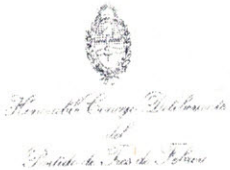 Honorable Concejo Deliberante
del
Partido de Tres de Febrero